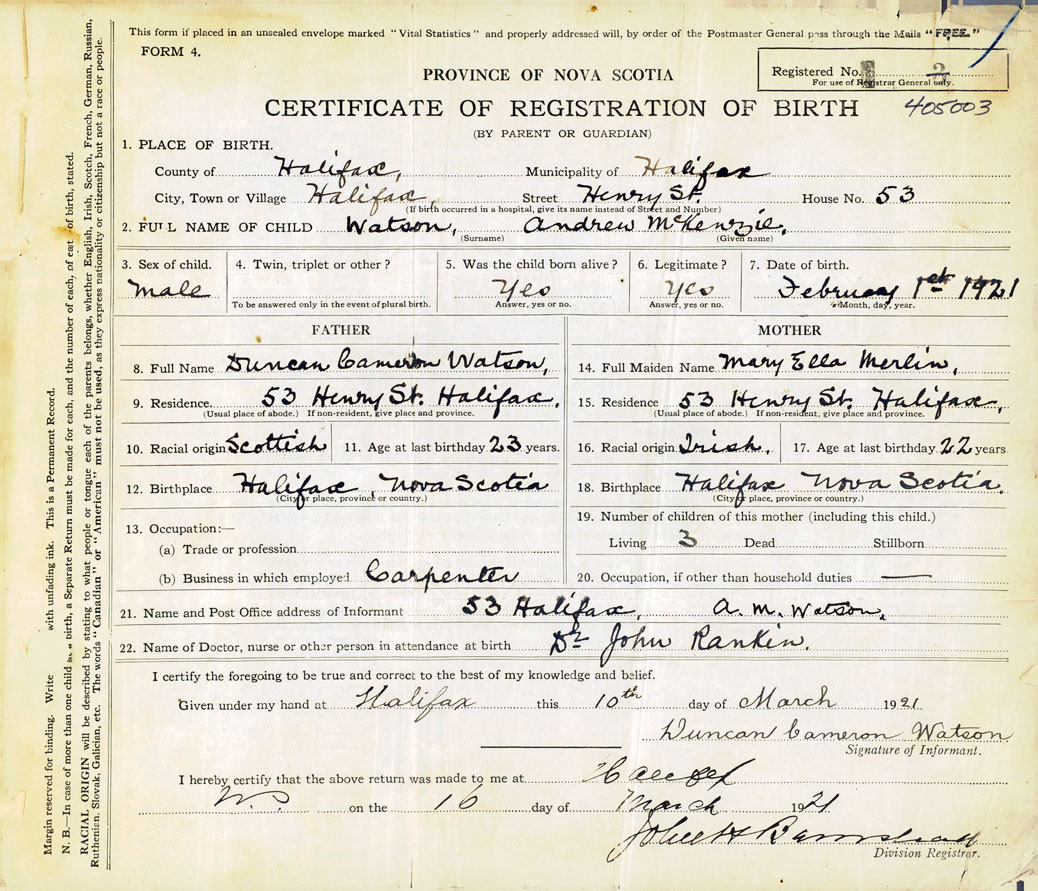 This form if placed in an unsealed envelope marked "Vital Statistics" and properly addressed will, by order of the Postmaster General pass through the Mails "FREE."
FORM 4.
Registered No. 2
For use of Registrar General only.
PROVINCE OF NOVA SCOTIA
CERTIFICATE OF REGISTRATION OF BIRTH 405003
(BY PARENT OR GUARDIAN)
1. PLACE OF BIRTH.
County of Halifax, Municipality of Halifax
City, Town or Village Halifax, Street Henry St. House No. 53
(If birth occurred in a hospital, give its name instead of Street and Number)
2. FULL NAME OF CHILD Watson, Andrew McKenzie,
(Surname) (Given name)
3. Sex of child. 4. Twin, triplet or other? 5. Was the child born alive? 6. Legitimate? 7. Date of birth.
Male Yes Yes February 1st 1921
To be answered only in the event of plural birth. Answer, yes or no. Answer, yes or no. Month, day, year.
FATHER MOTHER
8. Full Name Duncan Cameron Watson, 14. Full Maiden Name Mary Ella Merlin,
9. Residence. 53 Henry St. Halifax. 15. Residence 53 Henry St. Halifax,
(Usual place of abode.) If non-resident, give place and province. (Usual place of abode.) If non-resident, give place and province.
10. Racial origin Scottish 11. Age at last birthday 23 years. 16. Racial origin Irish, 17. Age at last birthday 22 years
12. Birthplace Halifax, Nova Scotia 18. Birthplace Halifax Nova Scotia,
(City or place, province or country.) (City or place, province or country.)
13. Occupation:— 19. Number of children of this mother (including this child.)
(a) Trade or profession Living 3 Dead Stillborn
(b) Business in which employed Carpenter 20. Occupation, if other than household duties —
21. Name and Post Office address of Informant 53 Halifax, A. M. Watson,
22. Name of Doctor, nurse or other person in attendance at birth Dr John Rankin.
I certify the foregoing to be true and correct to the best of my knowledge and belief.
Given under my hand at Halifax this 10th day of March 1921.
Duncan Cameron Watson
Signature of Informant.
I hereby certify that the above return was made to me at Halifax
N.S on the 16 day of March 1921
Division Registrar.
Margin reserved for binding. Write with unfading ink. This is a Permanent Record.
N. B.—In case of more than one child at a birth, a Separate Return must be made for each, and the number of each, of each birth, stated.
RACIAL ORIGIN will be described by stating to what people or tongue each of the parents belongs, whether English, Irish, Scotch, French, German, Russian,
Ruthenian, Slovak, Galician, etc. The words "Canadian" or "American" must not be used, as they express nationality or citizenship but not a race or people.